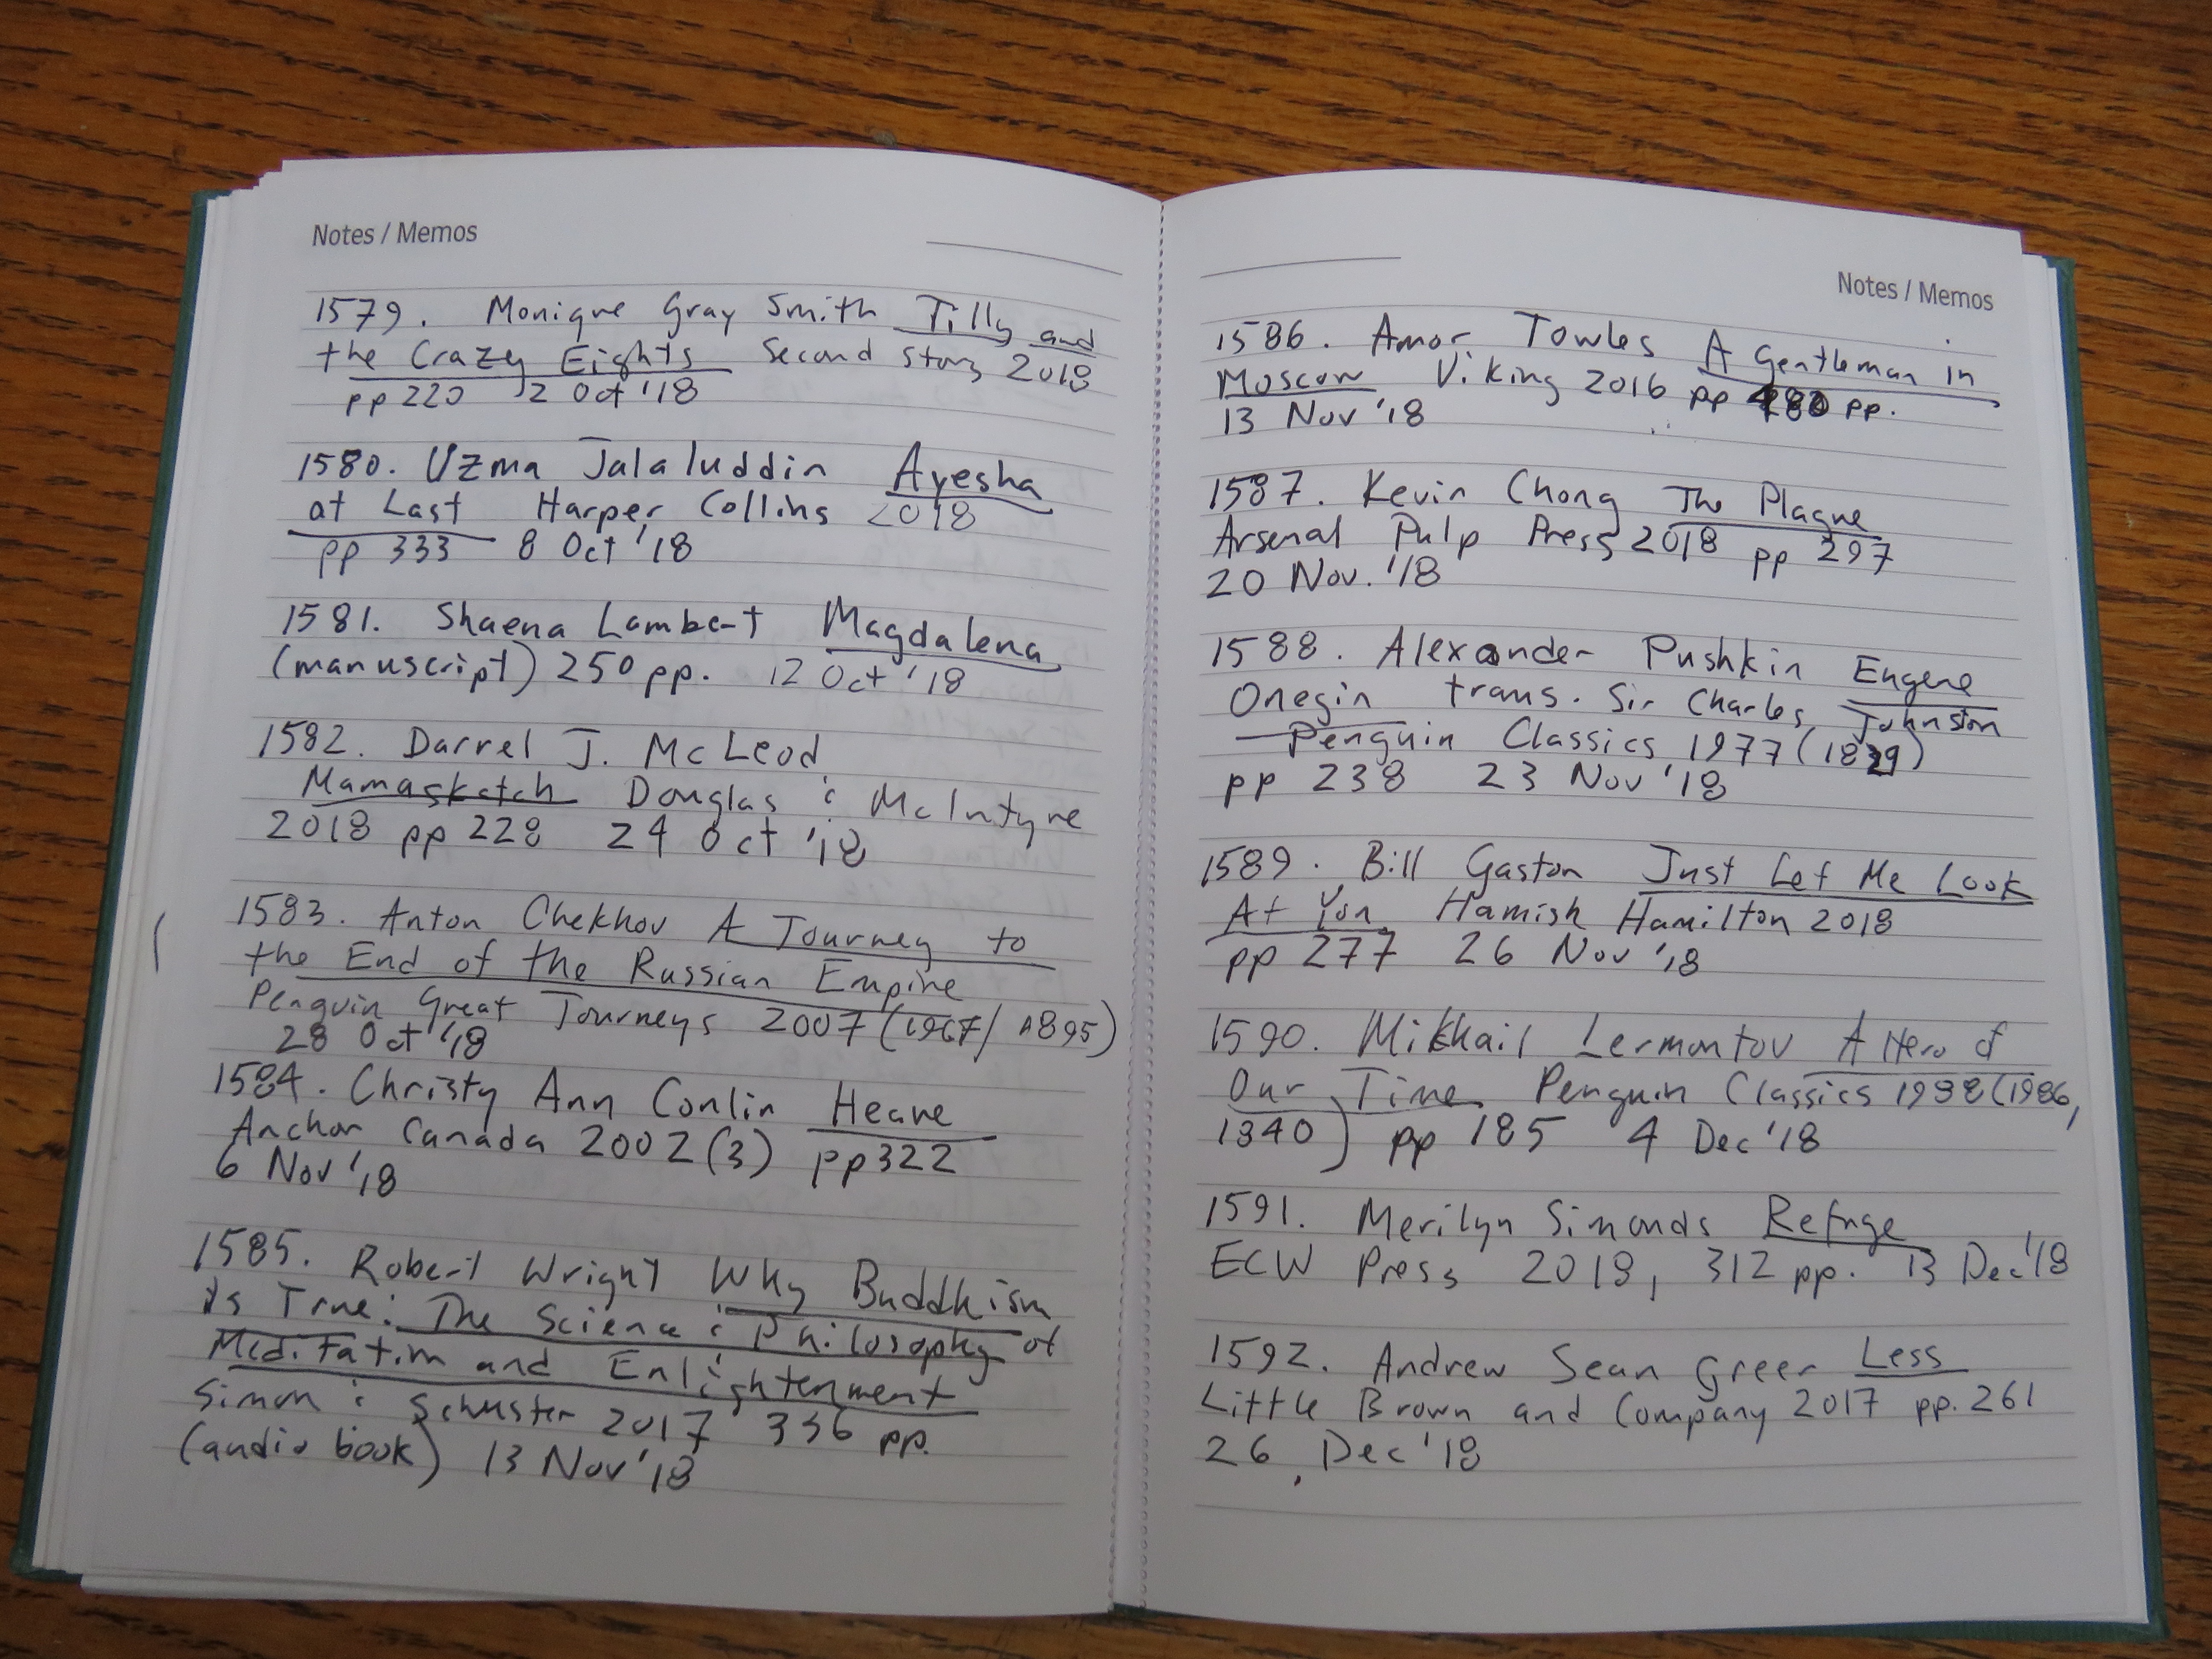 Notes / Memos
1579. Monique Gray Smith Tilly and
the Crazy Eights Second Story 2018
pp 220 2 Oct '18
1580. Uzma Jalaluddin Ayesha
at Last Harper Collins 2018
pp 333 8 Oct '18
1581. Shaena Lambert Magdalena
(manuscript) 250 pp. 12 Oct '18
1582. Darrel J. McLeod
Mamaskatch Douglas & McIntyre
2018 pp 228 24 Oct '18
1583. Anton Chekhov A Journey to
the End of the Russian Empire
Penguin Great Journeys 2007 (1967/1895)
28 Oct '18
1584. Christy Ann Conlin Heave
Anchor Canada 2002 (3) pp 322
6 Nov '18
1585. Robert Wright Why Buddhism
is True: The Science & Philosophy of
Meditation and Enlightenment
Simon & Schuster 2017 336 pp.
(audio book) 13 Nov '18
Notes / Memos
1586. Amor Towles A Gentleman in
Moscow Viking 2016 pp pp.
13 Nov '18
1587. Kevin Chong The Plague
Arsenal Pulp Press 2018 pp 297
20 Nov. '18
1588. Alexander Pushkin Eugene
Onegin trans. Sir Charles Johnston
Penguin Classics 1977 
pp 238 23 Nov '18
1589. Bill Gaston Just Let Me Look
At You Hamish Hamilton 2018
pp 277 26 Nov '18
1590. Mikhail Lermontov A Hero of
Our Time Penguin Classics (1986,
1840) pp 185 4 Dec '18
1591. Merilyn Simonds Refuge
ECW Press 2018, 312 pp. 13 Dec '18
1592. Andrew Sean Greer Less
Little Brown and Company 2017 pp. 261
26 Dec '18